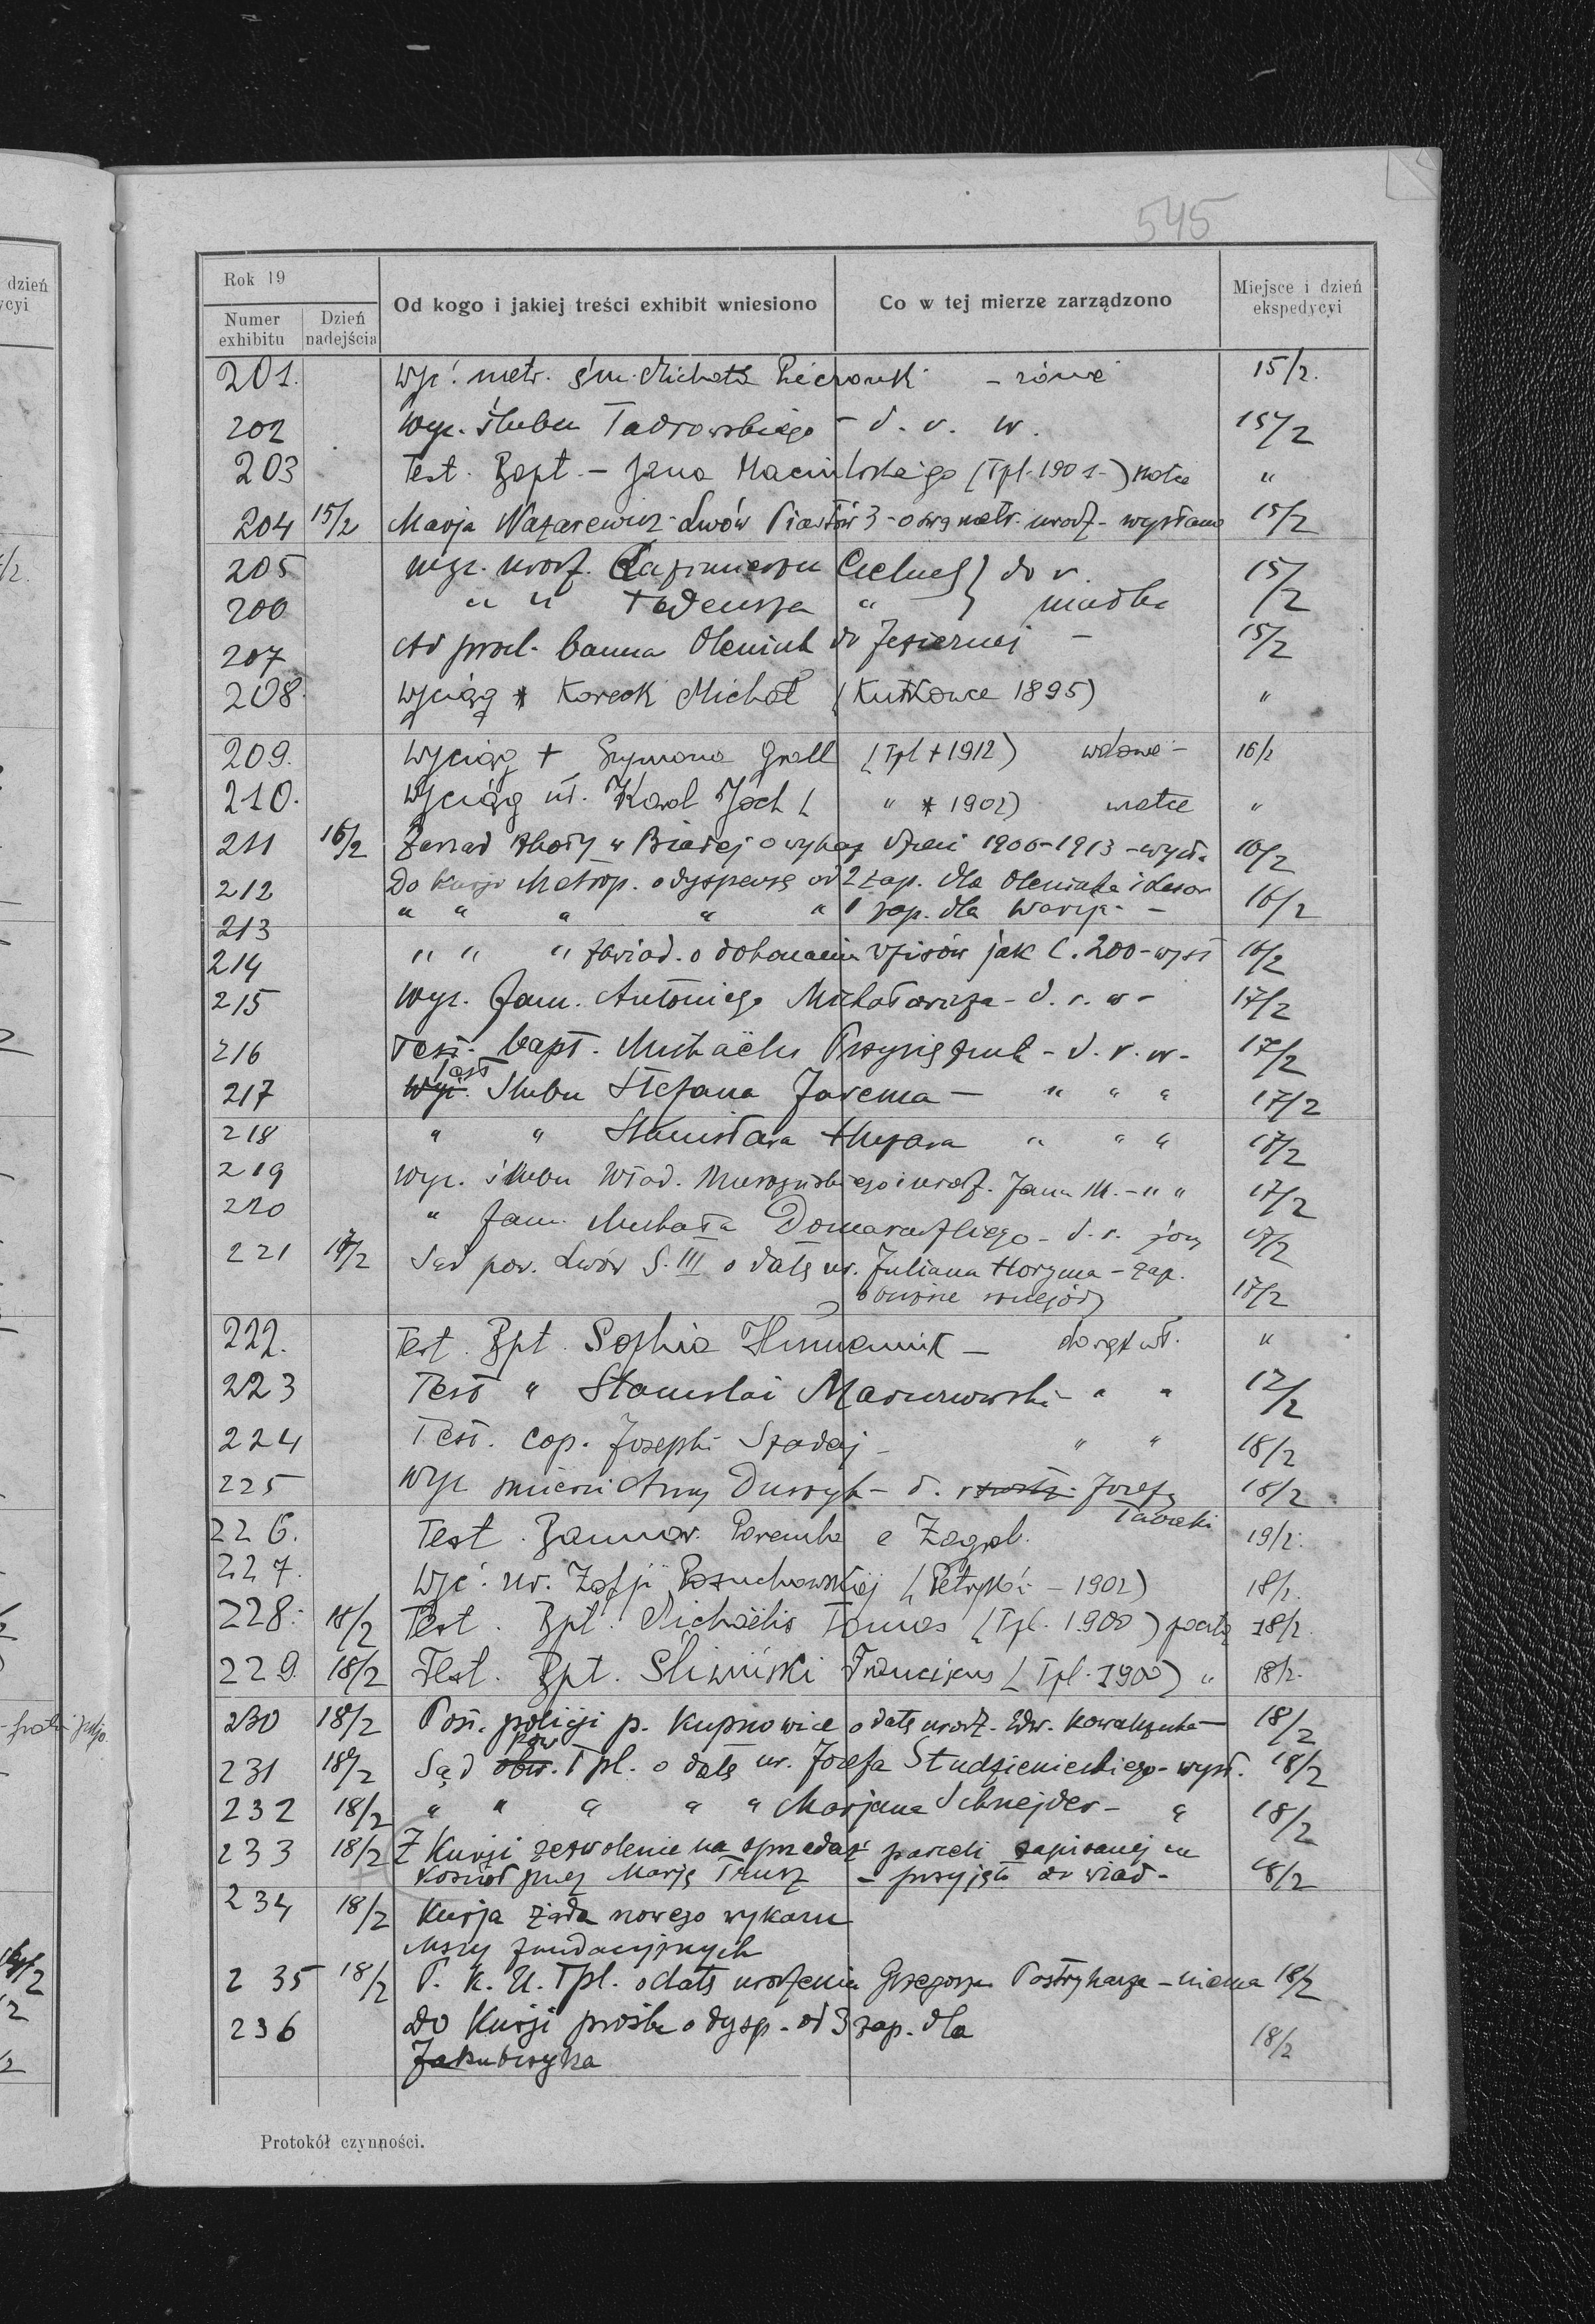 545
dzień
ycyi
Rok 19
Numer exhibitu
Dzień nadejścia
Od kogo i jakiej treści exhibit wniesiono
Co w tej mierze zarządzono
Miejsce i dzień ekspedycyi
201. Wyć. metr. śm. Michała - żonie 15/2.
202 Wyc. ślubu Tadrowskiego - d. r. w. 15/2
203 Test. Bapt. - Jana (Tpl. 1901-) matce "
204 15/2 Marja Nazarewicz - Lwów Piastów 3 - o swą metr. urodz - wysłano 15/2
205 wyc. urodz. Kazimierza } do r. 15/2
206 " " Tadeusza " } matka
207 Ad procl. banna Oleniuk do Jeziernej - 15/2
208. Wyciąg * Korecki Michał (Kutkowce 1895) "
209. Wyciąg + Szymona Grall (Tpl + 1912) wdowie - 16/2
210. Wyciąg ur. Karol Joch ( " * 1902) matce "
211 16/2 Zarząd szkoły w Białej o wykaz dzieci 1906-1913 - wysł. 16/2
212 Do Kurji Metrop. o dyspensę od 2 zap. dla Oleniuka i 16/2
213 " " " " " 1 zap. dla -
214 " " " zawiad. o dokonaniu wpisów jak l. 200 - wysł 16/2
215 Wyc. fam. Antoniego Michałowicza - d. r. w - 17/2
216 Test. bapt. Michaëlis - d. r. w - 17/2
217 Wyc. Test ślubu Stefana Jarema - " " " 17/2
218 " " Stanisława Huzara " " " 17/2
219 Wyc. ślubu Wład. i urodz. Jana M. - " " 17/2
220 " fam. Michała Domaradzkiego - d. r. żony 17/2
221 17/2 Sąd pow. Lwów S. III o datę ur. Juliana Horzma - zap.
17/2
222. Test. Bpt. Sophia - do rąk wł. "
223 Test " Stanislai - " " 17/2
224 Test. cop. Josephi Szadaj - " " 18/2
225 Wyc śmierci Anny - d. r. Józefy 18/2
226. Test. Bannor. Poremba e Zagrob. 19/2.
227. Wyć. ur. Zofji (Petryków - 1902) 18/2.
228. 18/2 Test. Bpt. Michaëlis Tomas (Tpl. 1900) pocztą 18/2.
229. 18/2 Test. Bpt. Śliwiński Franciscus (Tpl. 1900) " 18/2.
230 18/2 Post. policji p. Kupnowice o datę urodz. Edw. Kowalczuka - 18/2
231 18/2 Sąd obw. pow Tpl. o datę ur. Józefa Studzienieckiego - wysł. 18/2
232 18/2 " " " " " Marjana Schnejder - " 18/2
233 18/2 Z Kurji zezwolenie na sprzedaż parceli zapisanej na
kościół przez Marję Trusz - przyjęto do wiad - 18/2
234 18/2 Kurja żąda nowego wykazu
Mszy fundacyjnych
235 18/2 P. K. U. Tpl. o datę urodzenia Grzegorza Postryharza - niema 18/2
236 Do Kurji prośba o dysp. od 3 zap. dla
Jakubczyka 18/2
Protokół czynności.